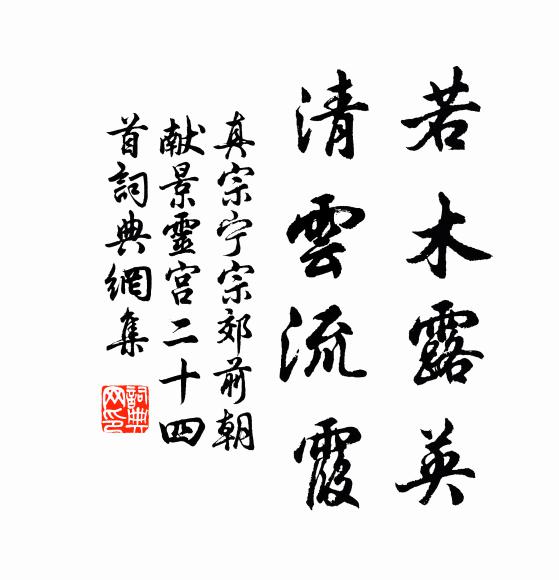 若木露英
清雲流霞
真宗宁宗郊前朝
献景靈宫二十四
首詞典網集
詞典网印